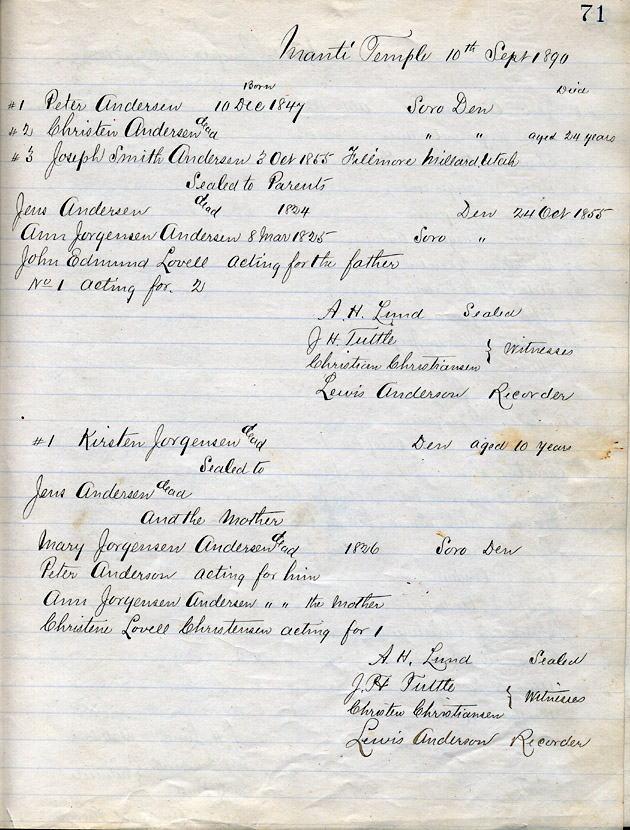 71
Manti Temple 10th Sept 1890
Born Died
#1 Peter Andersen 10 Dec 1847 Soro Den
#2 Christen Andersen dead " " aged 24 years
#3 Joseph Smith Andersen 3 Oct 1855 Fillmore Millard, Utah
Sealed to Parents
Jens Andersen dead 1824 Den 24 Oct 1855
Ann Jorgensen Andersen 8 Mar 1825 Soro "
John Edmund Lovell acting for the father
No 1 acting for 2
A. H. Lund Sealed
J H. Tuttle
Christian Christiansen } Witnesses
Lewis Anderson Recorder
#1 Kirsten Jorgensen dead Den aged 10 years
Sealed to
Jens Andersen dead
And the Mother
Mary Jorgensen Andersen dead 1826 Soro Den
Peter Anderson acting for him
Ann Jorgensen Andersen " " the Mother
Christine Lovell Christensen acting for 1
A. H. Lund Sealed
J. H Tuttle
Christen Christiansen } Witnesses
Lewis Anderson Recorder